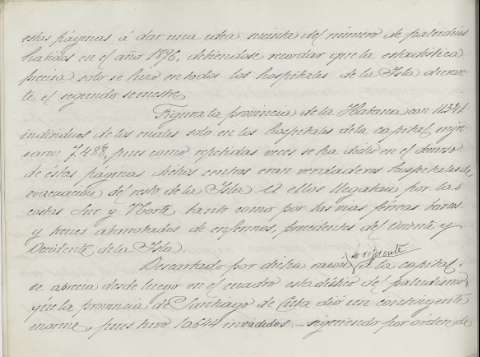 estas páginas á dar una idea exacta del número de palúdicos
habidos en el año 1896, debiéndose recordar que la estadística
precisa solo se hizo en todos los hospitales de la Isla duran-
te el segundo semestre.
Figura la provincia de la Habana con
individuos de los cuales solo en los hospitales de la capital, ingre
saron pues como repetidas veces se ha dicho en el curso
de estas páginas dichos centros eran verdaderos hospitales de
evacuación del resto de la Isla. A ellos llegaban por las
costas Sur y Norte tanto como por las vías férreas barcos
y trenes abarrotados de enfermos, procedentes del Oriente y
Occidente de la Isla.
Descartado por dicha razón lo referente á la capital:
se aprecia desde luego en el cuadro estadístico del paludismo
que la provincia de Santiago de Cuba dió un contingente
enorme, pues tuvo invadidos siguiendo por orden de